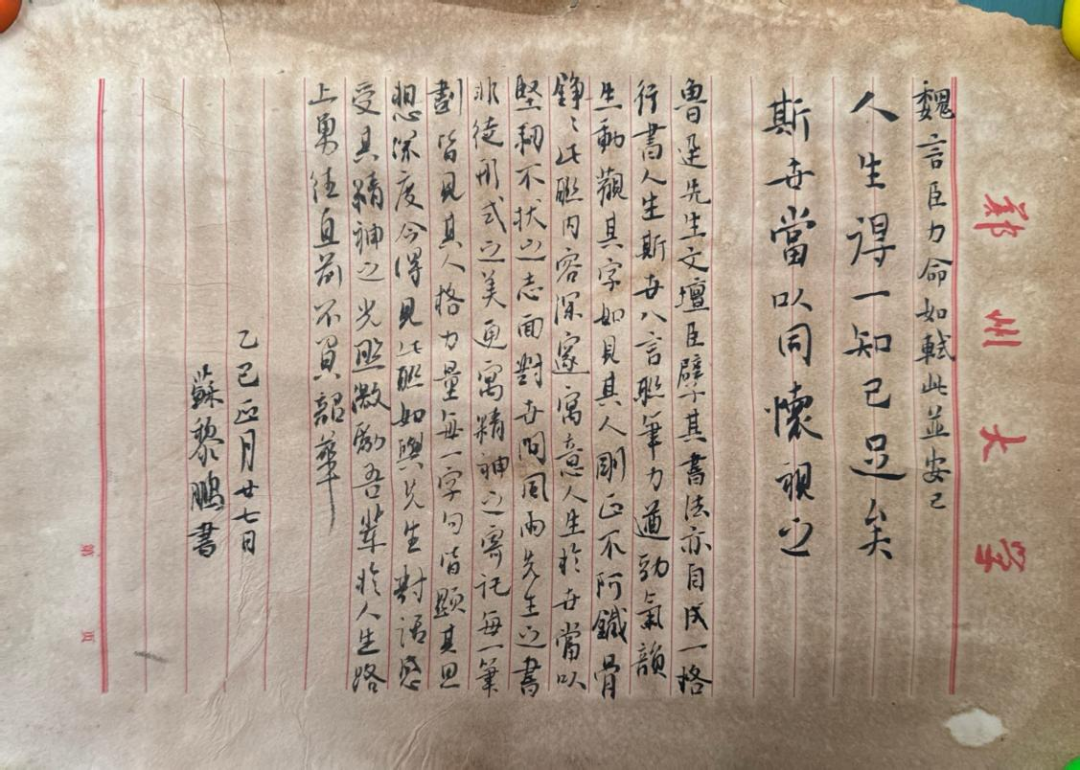 鄭州大学
魏言臣力命如軾此並安己
人生得一知己足矣
斯世當以同懷視之
魯迅先生文壇臣擘其書法亦自成一格
行書人生斯世八言聯筆力遒勁氣韻
生動觀其字如見其人剛正不阿鐵骨
錚〻此聯内容深邃寓意人生於世當以
堅韌不状之志面對世間風雨先生之書
非徒形式之美更寓精神之寄託每一筆
劃皆見其人格力量每一字句皆顯其思
想深度今得見此聯如與先生對話感
受其精神之光照激勵吾輩於人生路
上勇往直前不負韶華
乙巳正月廿七日
蘇黎鵬書
第 頁